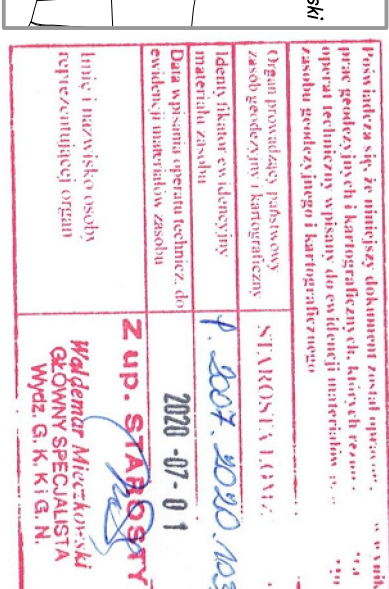 ski
Poświadcza się, że niniejszy dokument został oprac
prac geodezyjnych i kartograficznych, których
operat techniczny wpisany do ewidencji materiałów
zasobu geodezyjnego i kartograficznego
Organ prowadzący państwowy
zasób geodezyjny i kartograficzny
STAROSTA
Identyfikator ewidencyjny
materiału zasobu
P. 2007. 2020. 103
Data wpisania operatu technicz. do
ewidencji materiałów zasobu
2020 -07- 0 1
Imię i nazwisko osoby
reprezentującej organ
Z up. STAROSTY
Waldemar Mieczkowski
GŁÓWNY SPECJALISTA
Wydz. G. K. K i G. N.